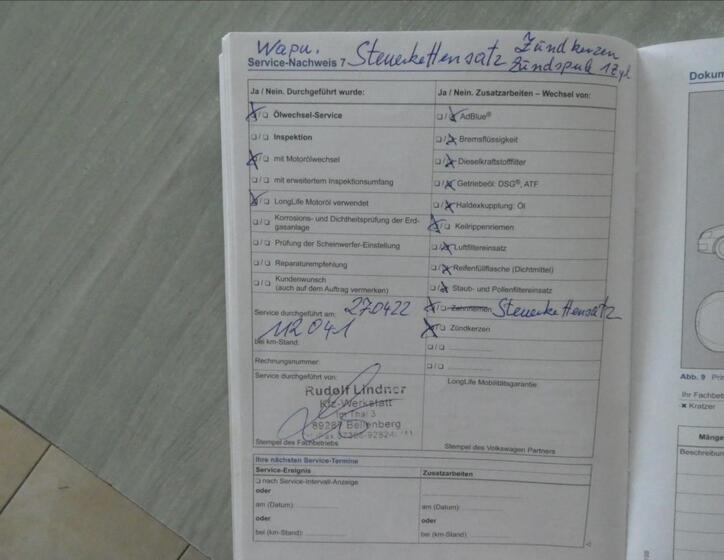 Wapu. Steuerkettensatz Zündkerzen
Service-Nachweis 7 Zündspule 1Zyl
Ja / Nein. Durchgeführt wurde:
❑/❑ Ölwechsel-Service
❑/❑ Inspektion
❑/❑ mit Motorölwechsel
❑/❑ mit erweitertem Inspektionsumfang
❑/❑ LongLife Motoröl verwendet
❑/❑ Korrosions- und Dichtheitsprüfung der Erd-
gasanlage
❑/❑ Prüfung der Scheinwerfer-Einstellung
❑/❑ Reparaturempfehlung
❑/❑ Kundenwunsch
(auch auf dem Auftrag vermerken)
Service durchgeführt am: 270422
112041
bei km-Stand:
Rechnungsnummer:
Service durchgeführt von:
Rudolf Lindner
Kfz-Werkstatt
Im Thal 3
89287 Bellenberg
Stempel des Fachbetriebs
Ja / Nein. Zusatzarbeiten – Wechsel von:
❑/❑ AdBlue®
❑/❑ Bremsflüssigkeit
❑/❑ Dieselkraftstofffilter
❑/❑ Getriebeöl: DSG®, ATF
❑/❑ Haldexkupplung: Öl
❑/❑ Keilrippenriemen
❑/❑ Luftfiltereinsatz
❑/❑ Reifenfüllflasche (Dichtmittel)
❑/❑ Staub- und Pollenfiltereinsatz
❑/❑ Zahnriemen Steuerkettensatz
❑/❑ Zündkerzen
❑/❑
❑/❑
LongLife Mobilitätsgarantie:
Stempel des Volkswagen Partners
Ihre nächsten Service-Termine
Service-Ereignis
❑ nach Service-Intervall-Anzeige
oder
am (Datum):
oder
bei (km-Stand):
Zusatzarbeiten
am (Datum):
oder
bei (km-Stand):
Dokum
Abb. 9 Prin
Ihr Fachbet
✖ Kratzer
Mänge
Beschreibun